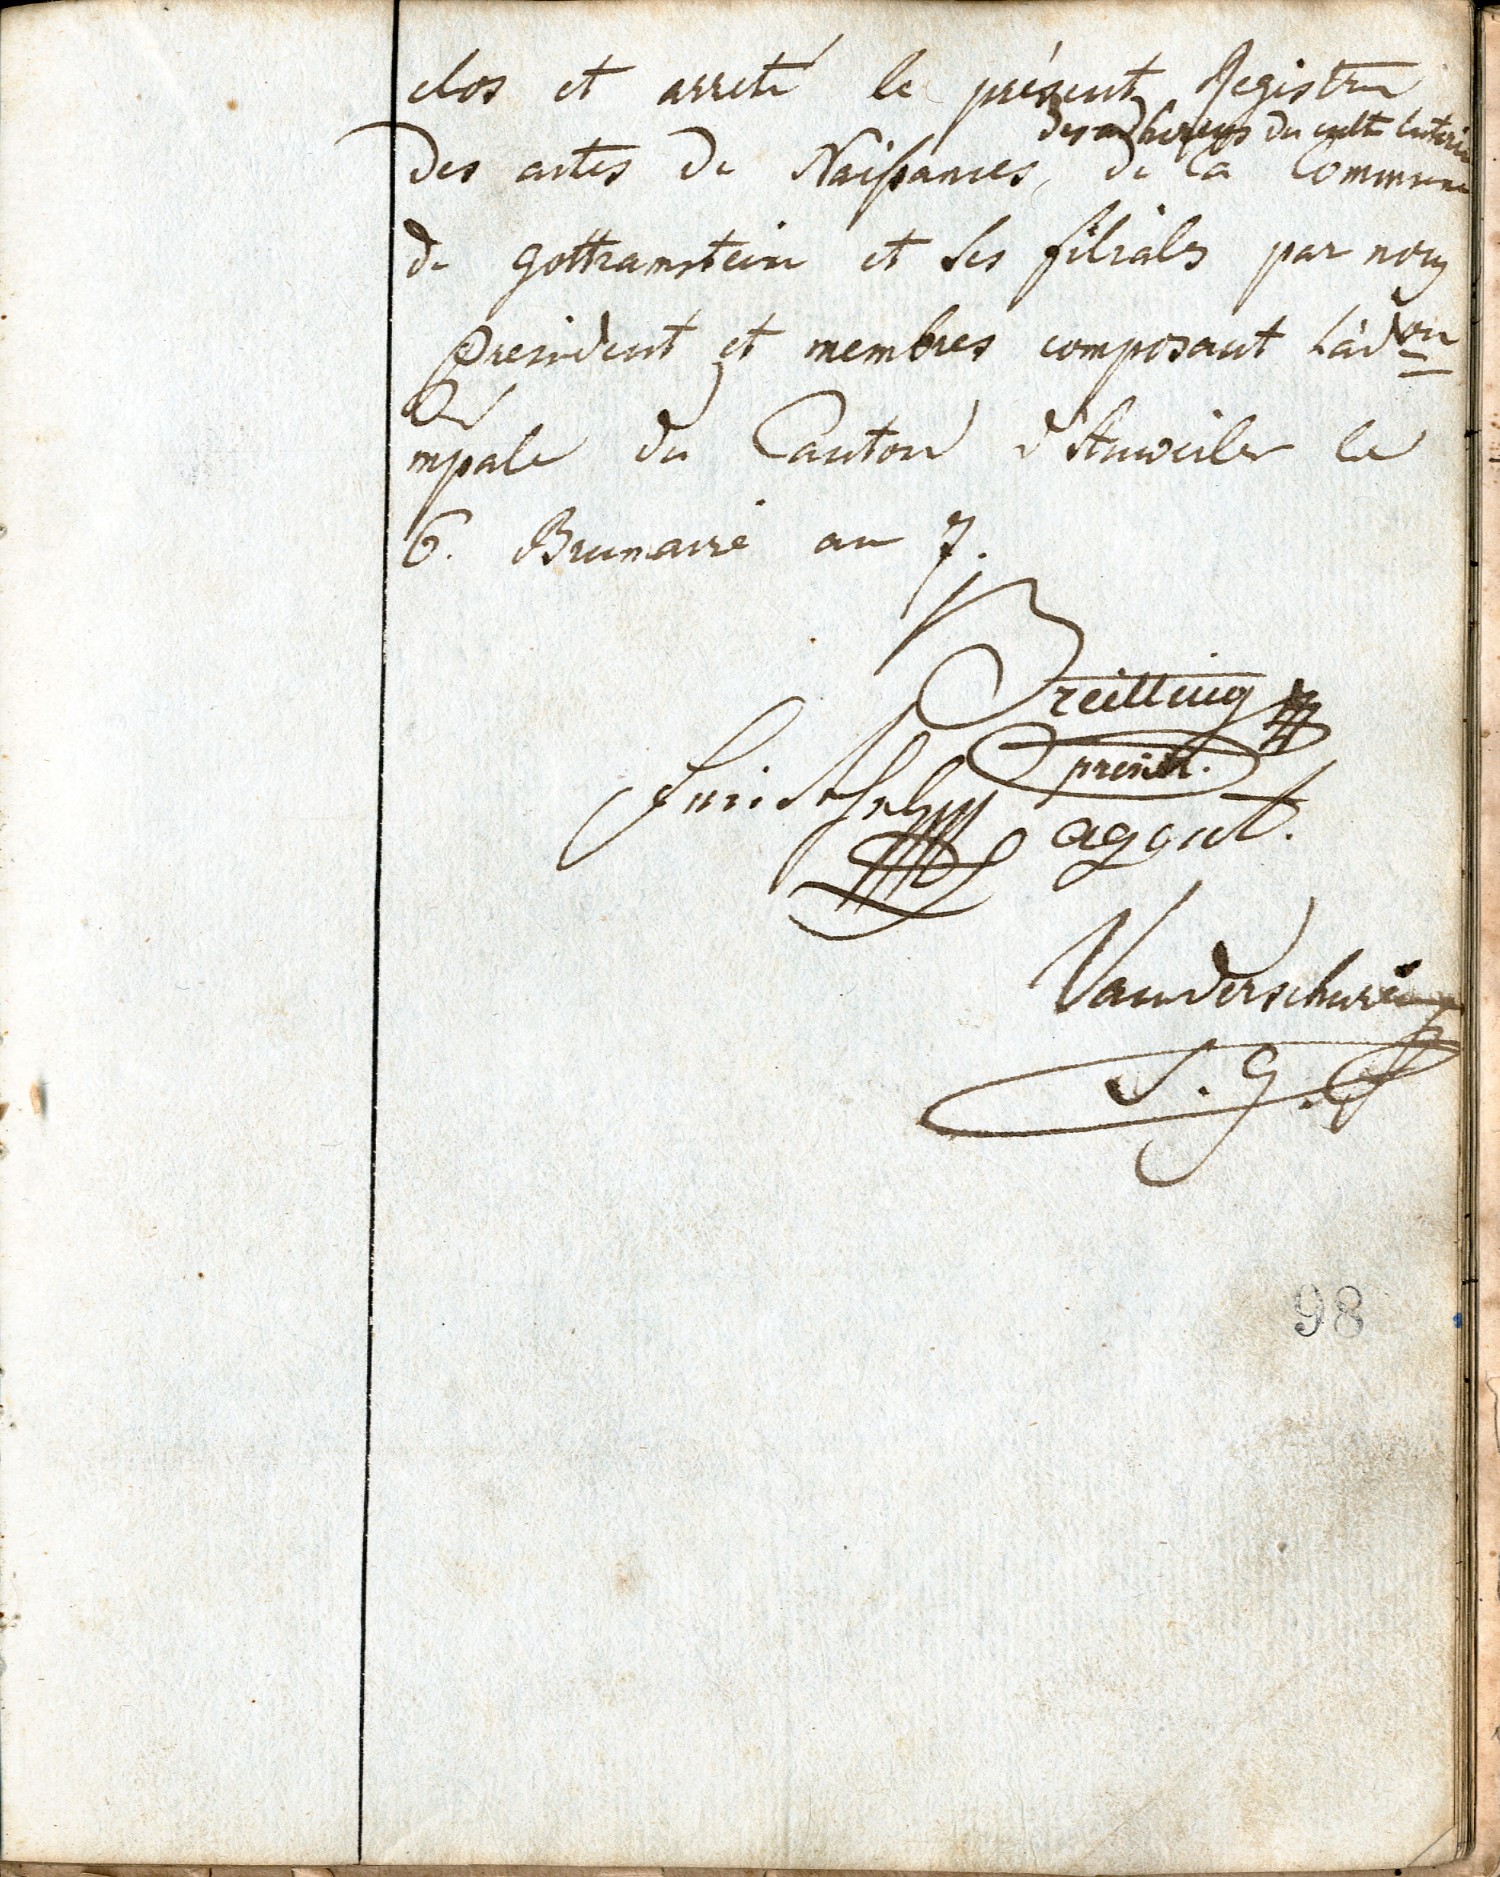 clos et arreté le présent Registre
des adherens du culte luteri
des actes de Naissances, de la Commune
de gottramstein et ses filials par nous
President et membres composant l'ad.on
mpale du Canton d'Anweiler le
6. Brumaire an 7.
Breitling
presidt.
agent.
Vanderschure
S. G.
98